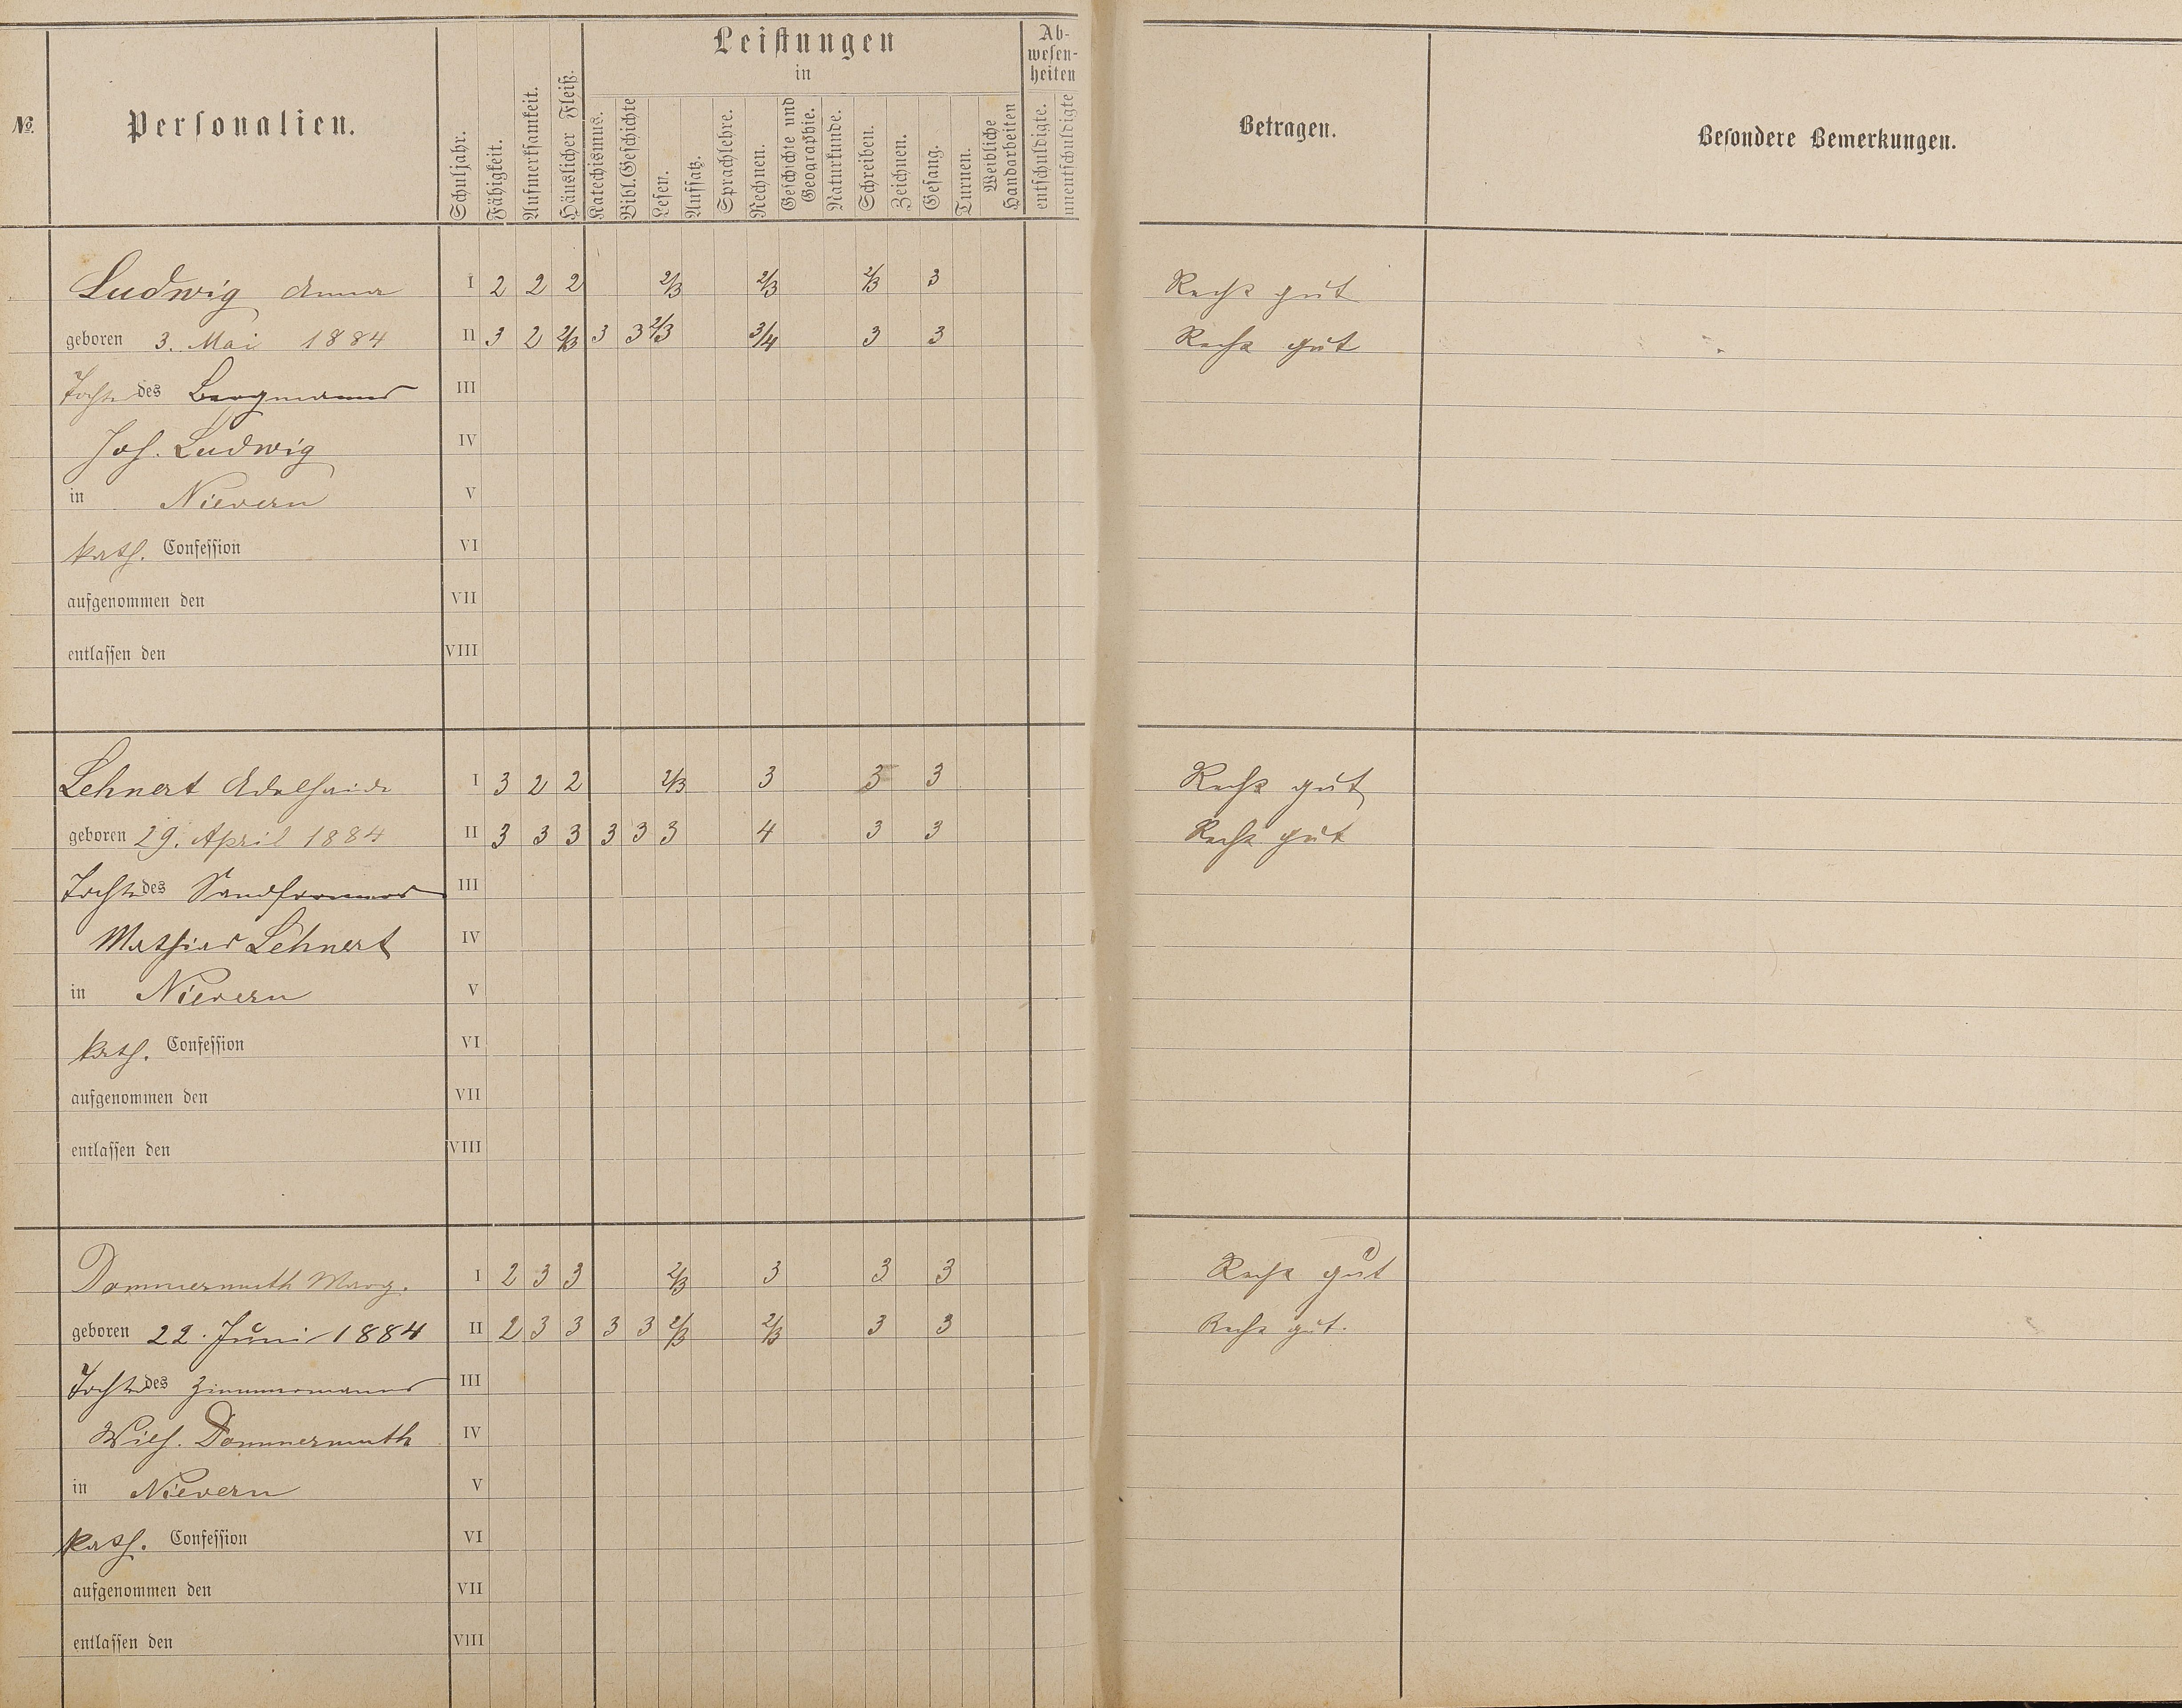 Leistungen
in
Ab-
wesen-
heiten
№.
Personalien.
Schuljahr.
Fähigkeit.
Aufmerksamkeit.
Häuslicher Fleiß.
Katechismus.
Bibl. Geschichte
Lesen.
Aufsatz.
Sprachlehre.
Rechnen.
Geschichte und
Geographie.
Naturkunde.
Schreiben.
Zeichnen.
Gesang.
Turnen.
Weibliche
Handarbeiten
entschuldigte.
unentschuldigte
Betragen.
Besondere Bemerkungen.
Ludwig Anna I 2 2 2 2/3 2/3 2/3 3 Recht gut
geboren 3. Mai 1884 II 3 2 2/3 3 3 2/3 3/4 3 3 Recht gut
Tochter des Bergmanns III
Joh. Ludwig IV
in Nievern V
kath. Confession VI
aufgenommen den VII
entlassen den VIII
Lehnert Adelheide I 3 2 2 2/3 3 3 3 Recht gut
geboren 29. April 1884 II 3 3 3 3 3 3 4 3 3 Recht gut
Tochter des Sandformers III
Mathias Lehnert IV
in Nievern V
kath. Confession VI
aufgenommen den VII
entlassen den VIII
Dommermuth Marg. I 2 3 3 2/3 3 3 3 Recht gut
geboren 22. Juni 1884 II 2 3 3 3 3 2/3 2/3 3 3 Recht gut.
Tochter des Zimmermanns III
Wilh. Dommermuth IV
in Nievern V
kath. Confession VI
aufgenommen den VII
entlassen den VIII